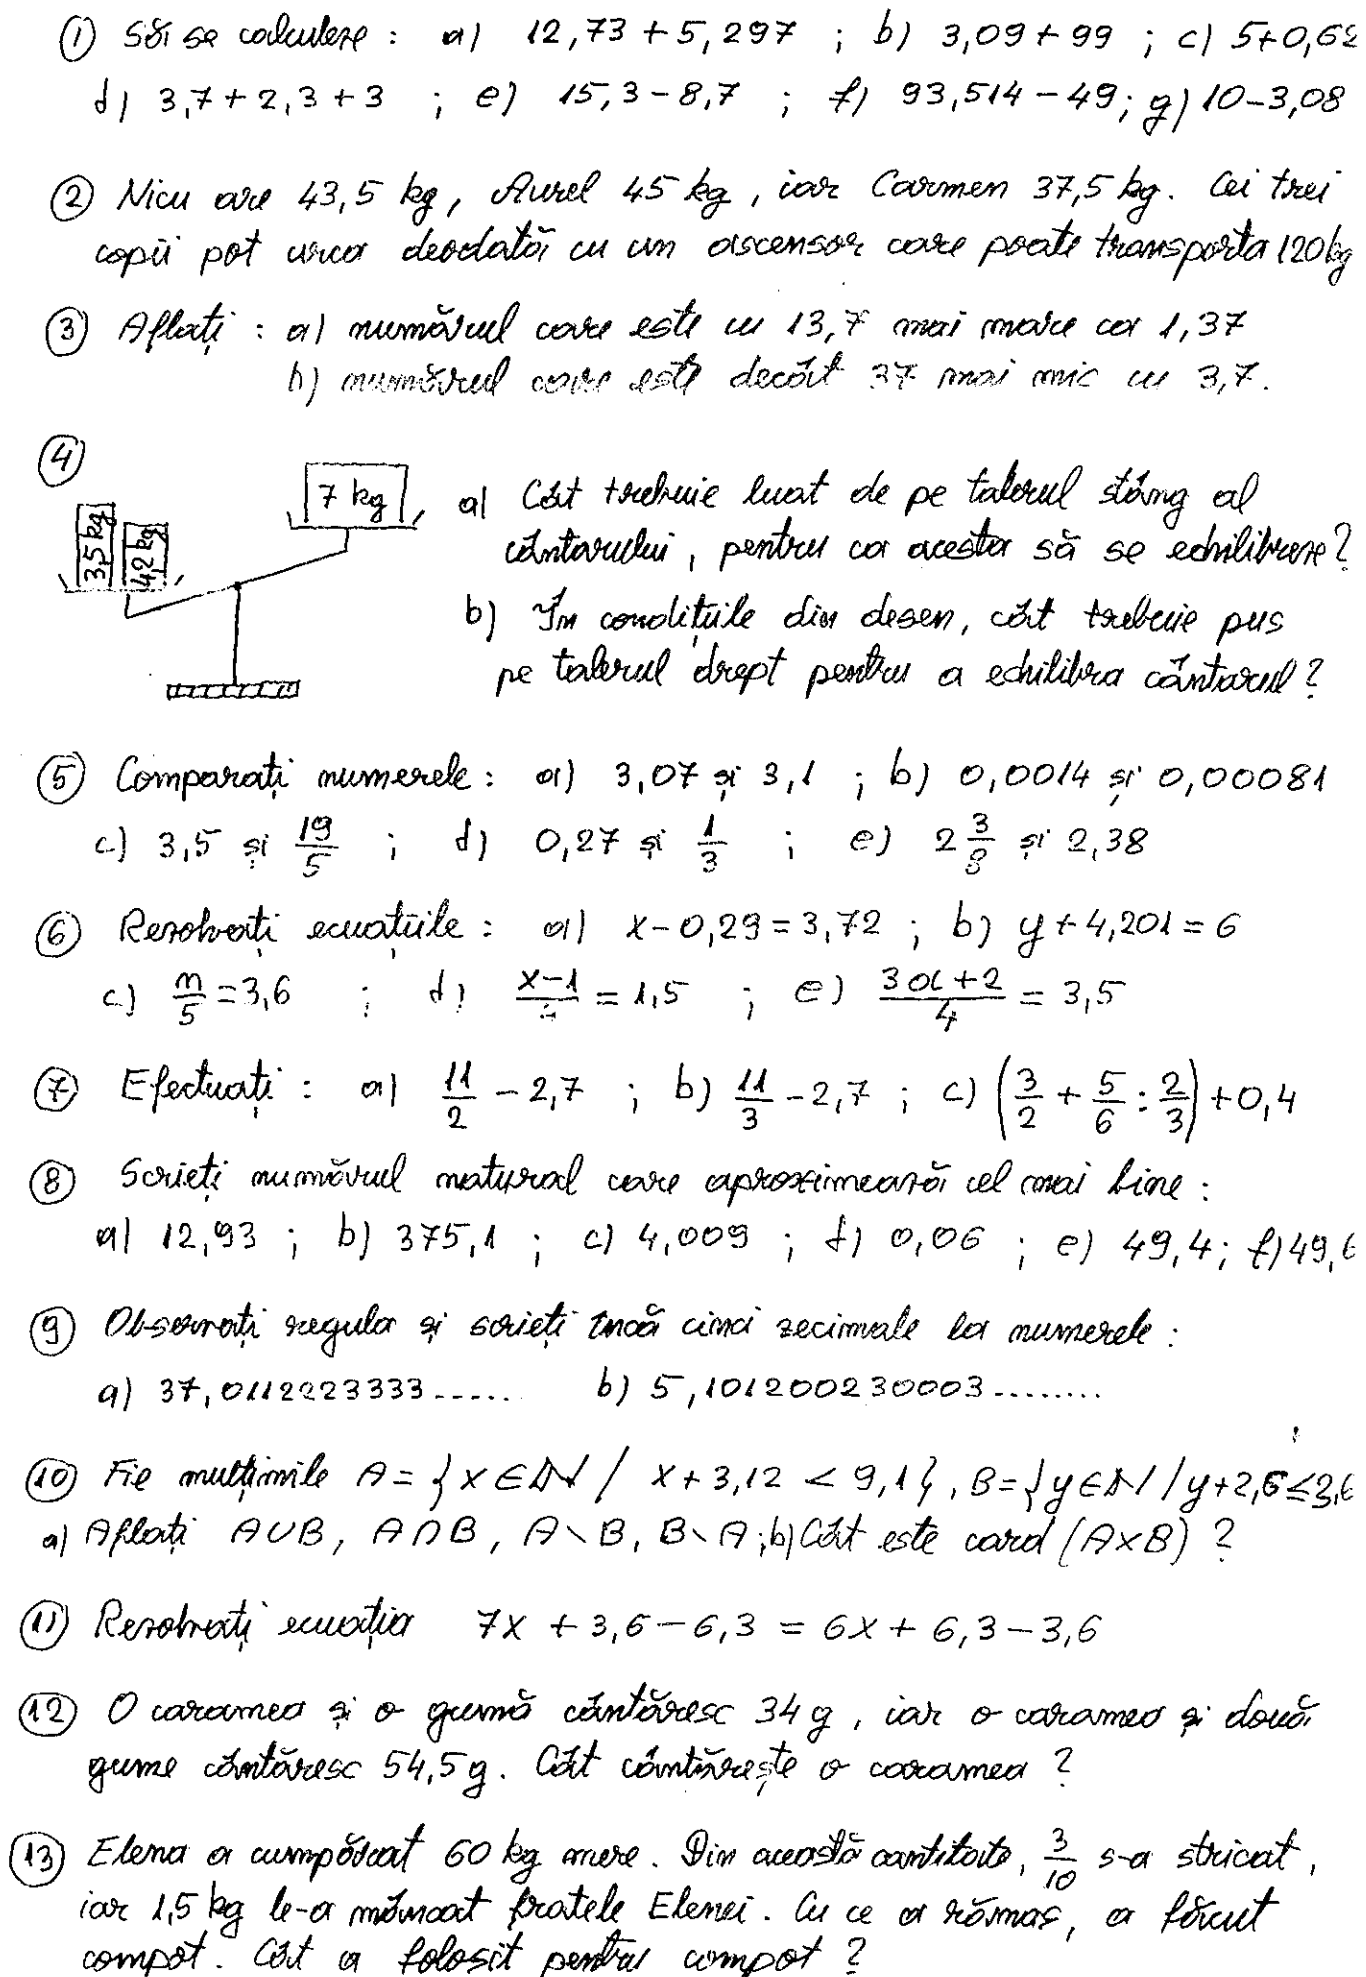 ① Să se calculeze : a) 12,73 + 5,297 ; b) 3,09 + 99 ; c) 5+0,62
d) 3,7 + 2,3 + 3 ; e) 15,3 - 8,7 ; f) 93,514 - 49 ; g) 10-3,08
② Nicu are 43,5 kg, Aurel 45 kg, iar Carmen 37,5 kg. Cei trei
copii pot urca deodată cu un ascensor care poate transporta 120 kg
③ Aflați : a) numărul care este cu 13,7 mai mare ca 1,37
b) numărul care este decât 37 mai mic cu 3,7.
④
3,5 kg 4,2 kg 7 kg
a) Cât trebuie luat de pe talerul stâng al
cântarului, pentru ca acesta să se echilibreze ?
b) În condițiile din desen, cât trebuie pus
pe talerul drept pentru a echilibra cântarul ?
⑤ Comparați numerele : a) 3,07 și 3,1 ; b) 0,0014 și 0,00081
c) 3,5 și 19/5 ; d) 0,27 și 1/3 ; e) 2 3/8 și 2,38
⑥ Rezolvați ecuațiile : a) x - 0,29 = 3,72 ; b) y + 4,201 = 6
c) n/5 = 3,6 ; d) x-1 = 1,5 ; e) (3a+2)/4 = 3,5
⑦ Efectuați : a) 11/2 - 2,7 ; b) 11/3 - 2,7 ; c) (3/2 + 5/6 : 2/3) + 0,4
⑧ Scrieți numărul natural care aproximează cel mai bine :
a) 12,93 ; b) 375,1 ; c) 4,009 ; d) 0,06 ; e) 49,4 ; f) 49,6
⑨ Observați regula și scrieți încă cinci zecimale la numerele :
a) 37,0112223333...... b) 5,101200230003........
⑩ Fie mulțimile A = {x ∈ N / x + 3,12 < 9,1}, B = {y ∈ N / y + 2,6 ≤ 3,6
a) Aflați A∪B, A∩B, A\B, B\A ; b) Cât este card (A×B) ?
⑪ Rezolvați ecuația 7x + 3,6 - 6,3 = 6x + 6,3 - 3,6
⑫ O caramea și o gumă cântăresc 34 g, iar o caramea și două
gume cântăresc 54,5 g. Cât cântărește o caramea ?
⑬ Elena a cumpărat 60 kg mere. Din această cantitate, 3/10 s-a stricat,
iar 1,5 kg le-a mâncat fratele Elenei. Cu ce a rămas, a făcut
compot. Cât a folosit pentru compot ?